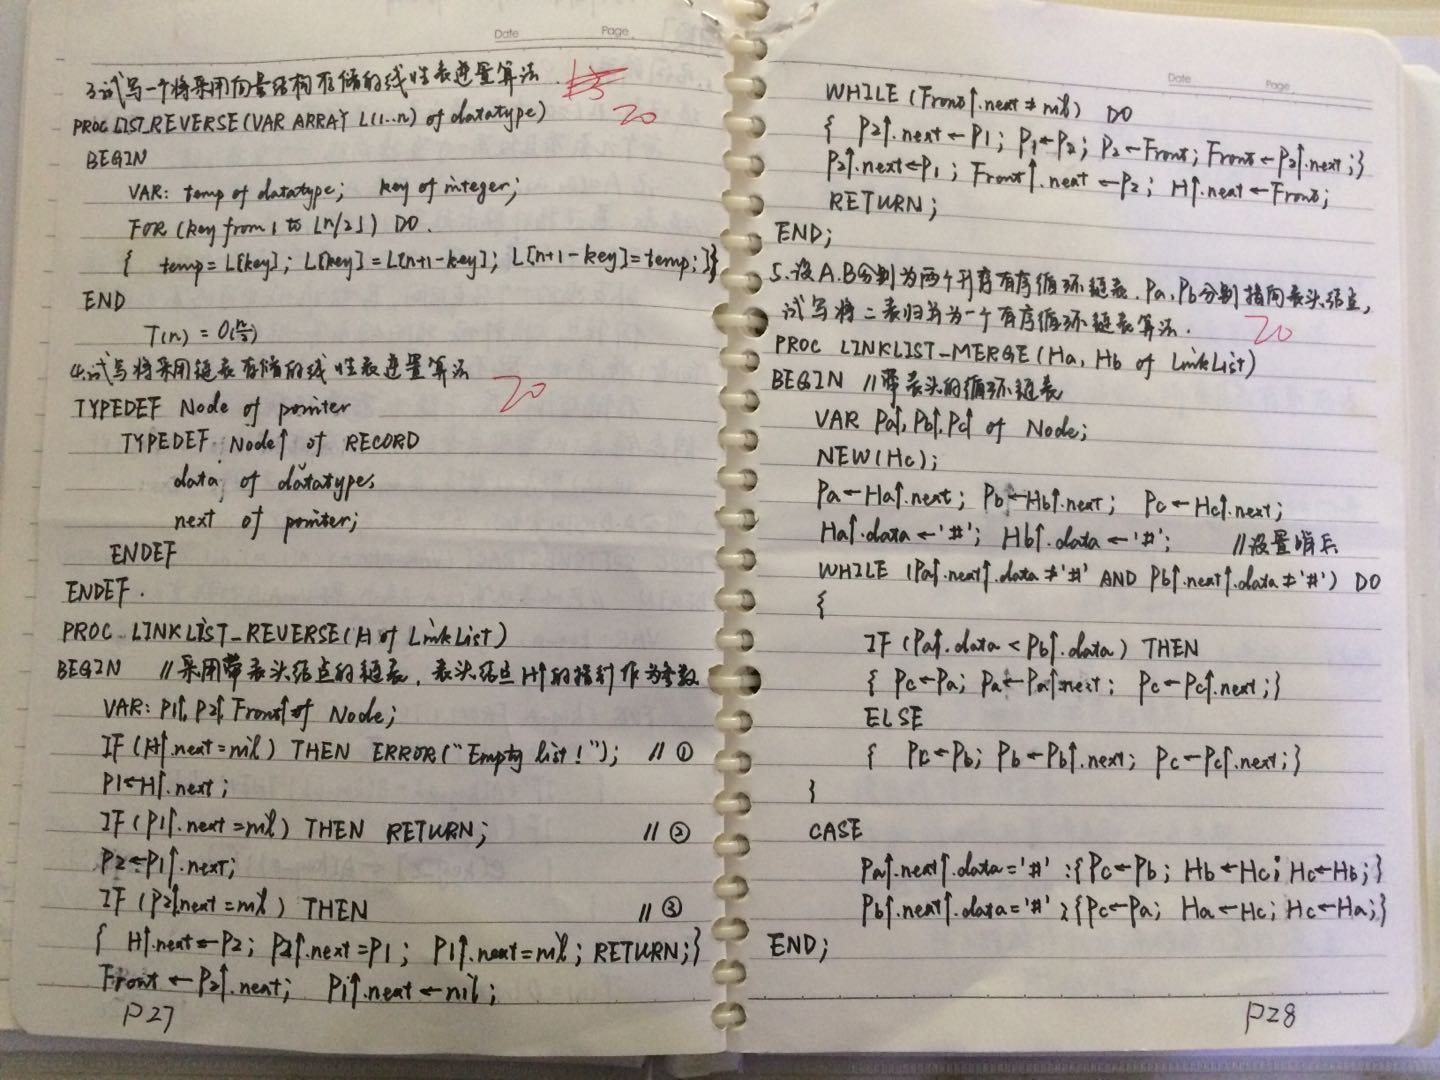 Date Page
3.试写一个将采用向量结构存储的线性表逆置算法.
20
PROC LIST_REVERSE(VAR ARRAY L(1..n) of datatype)
BEGIN
VAR: temp of datatype; key of integer;
FOR (key from 1 to ⌊n/2⌋) DO.
{ temp=L[key]; L[key]=L[n+1-key]; L[n+1-key]=temp;}
END
T(n)=O(n/2)
4.试写将采用链表存储的线性表逆置算法
20
TYPEDEF Node of pointer
TYPEDEF Node↑ of RECORD
data of datatype;
next of pointer;
ENDEF
ENDEF.
PROC LINKLIST_REVERSE(H of LinkList)
BEGIN //采用带表头结点的链表,表头结点H↑的指针作为参数
VAR: P1↑,P2↑,Front↑ of Node;
IF(H↑.next=nil) THEN ERROR("Empty list!"); //①
P1←H↑.next;
IF(P1↑.next=nil) THEN RETURN; //②
P2←P1↑.next;
IF(P2↑.next=nil) THEN //③
{ H↑.next←P2; P2↑.next=P1; P1↑.next=nil; RETURN;}
Front←P2↑.next; P1↑.next←nil;
P27
Date Page
WHILE(Front↑.next≠nil) DO
{ P2↑.next←P1; P1←P2; P2←Front; Front←P2↑.next;}
P2↑.next←P1; Front↑.next←P2; H↑.next←Front;
RETURN;
END;
5.设A.B分别为两个升序有序循环链表.Pa,Pb分别指向表头结点,
试写将二表归并为一个有序循环链表算法.
20
PROC LINKLIST_MERGE(Ha, Hb of LinkList)
BEGIN //带表头的循环链表
VAR Pa↑,Pb↑,Pc↑ of Node;
NEW(Hc);
Pa←Ha↑.next; Pb←Hb↑.next; Pc←Hc↑.next;
Ha↑.data←'#'; Hb↑.data←'#'; //设置哨兵
WHILE (Pa↑.next↑.data≠'#' AND Pb↑.next↑.data≠'#') DO
{
IF (Pa↑.data<Pb↑.data) THEN
{ Pc←Pa; Pa←Pa↑.next; Pc←Pc↑.next;}
ELSE
{ Pc←Pb; Pb←Pb↑.next; Pc←Pc↑.next;}
}
CASE
Pa↑.next↑.data='#':{Pc←Pb; Hb←Hc; Hc←Hb;}
Pb↑.next↑.data='#':{Pc←Pa; Ha←Hc; Hc←Ha;}
END;
P28